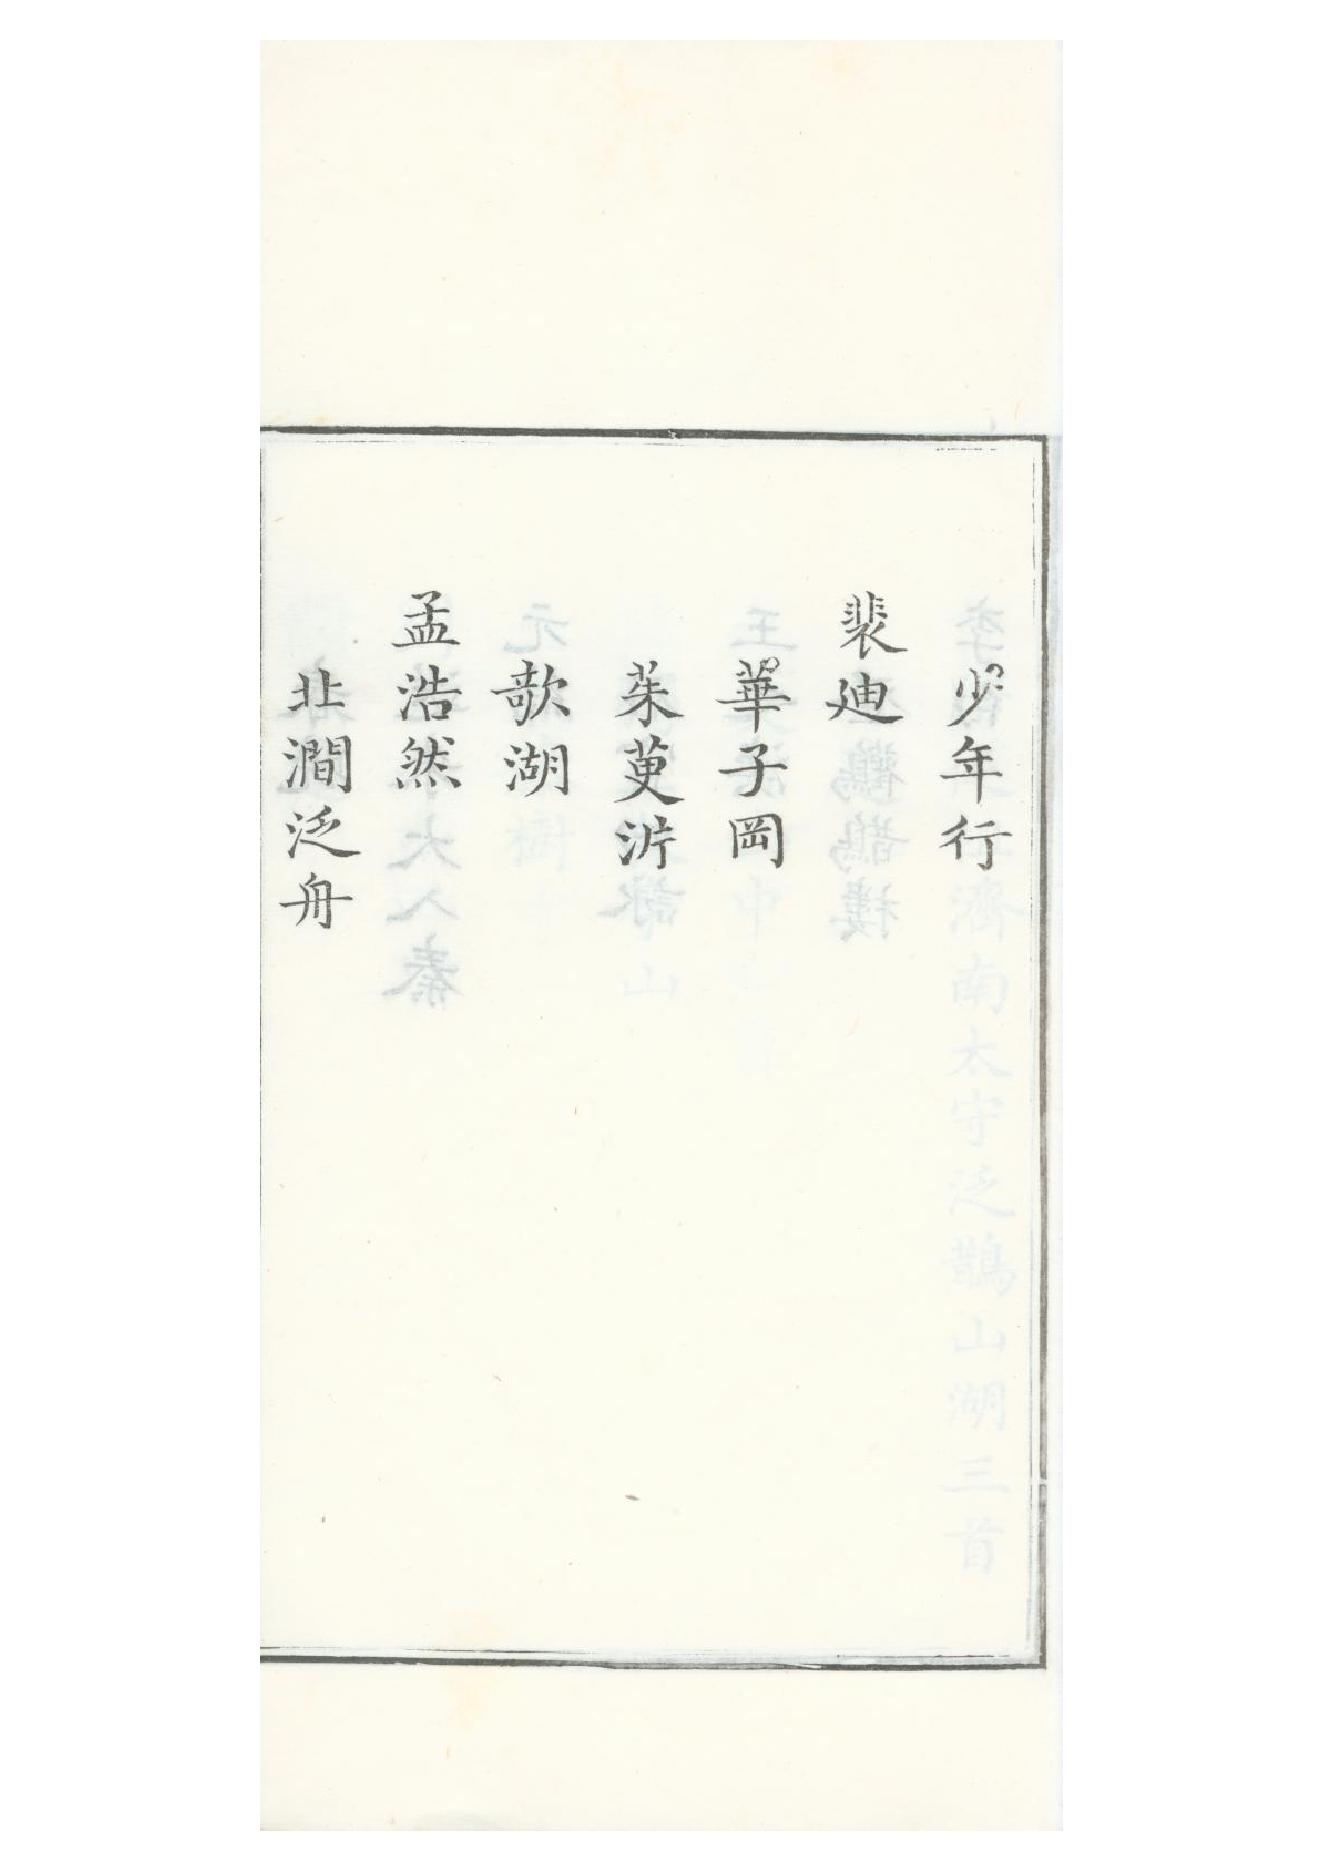 少年行
裴迪
華子岡
茱萸沜
歌湖
孟浩然
北澗泛舟